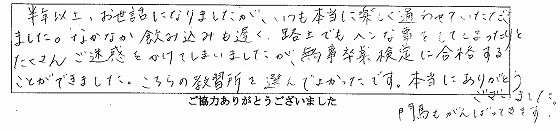 半年以上、お世話になりましたが、いつも本当に楽しく通わせていただき
ました。なかなか飲み込みも遅く、路上でもヘンな事をしてしまったりと
たくさんご迷惑をかけてしまいましたが、無事卒業検定に合格する
ことができました。こちらの教習所を選んでよかったです。本当にありがとう
ございました。
門馬もがんばってきます。
ご協力ありがとうございました